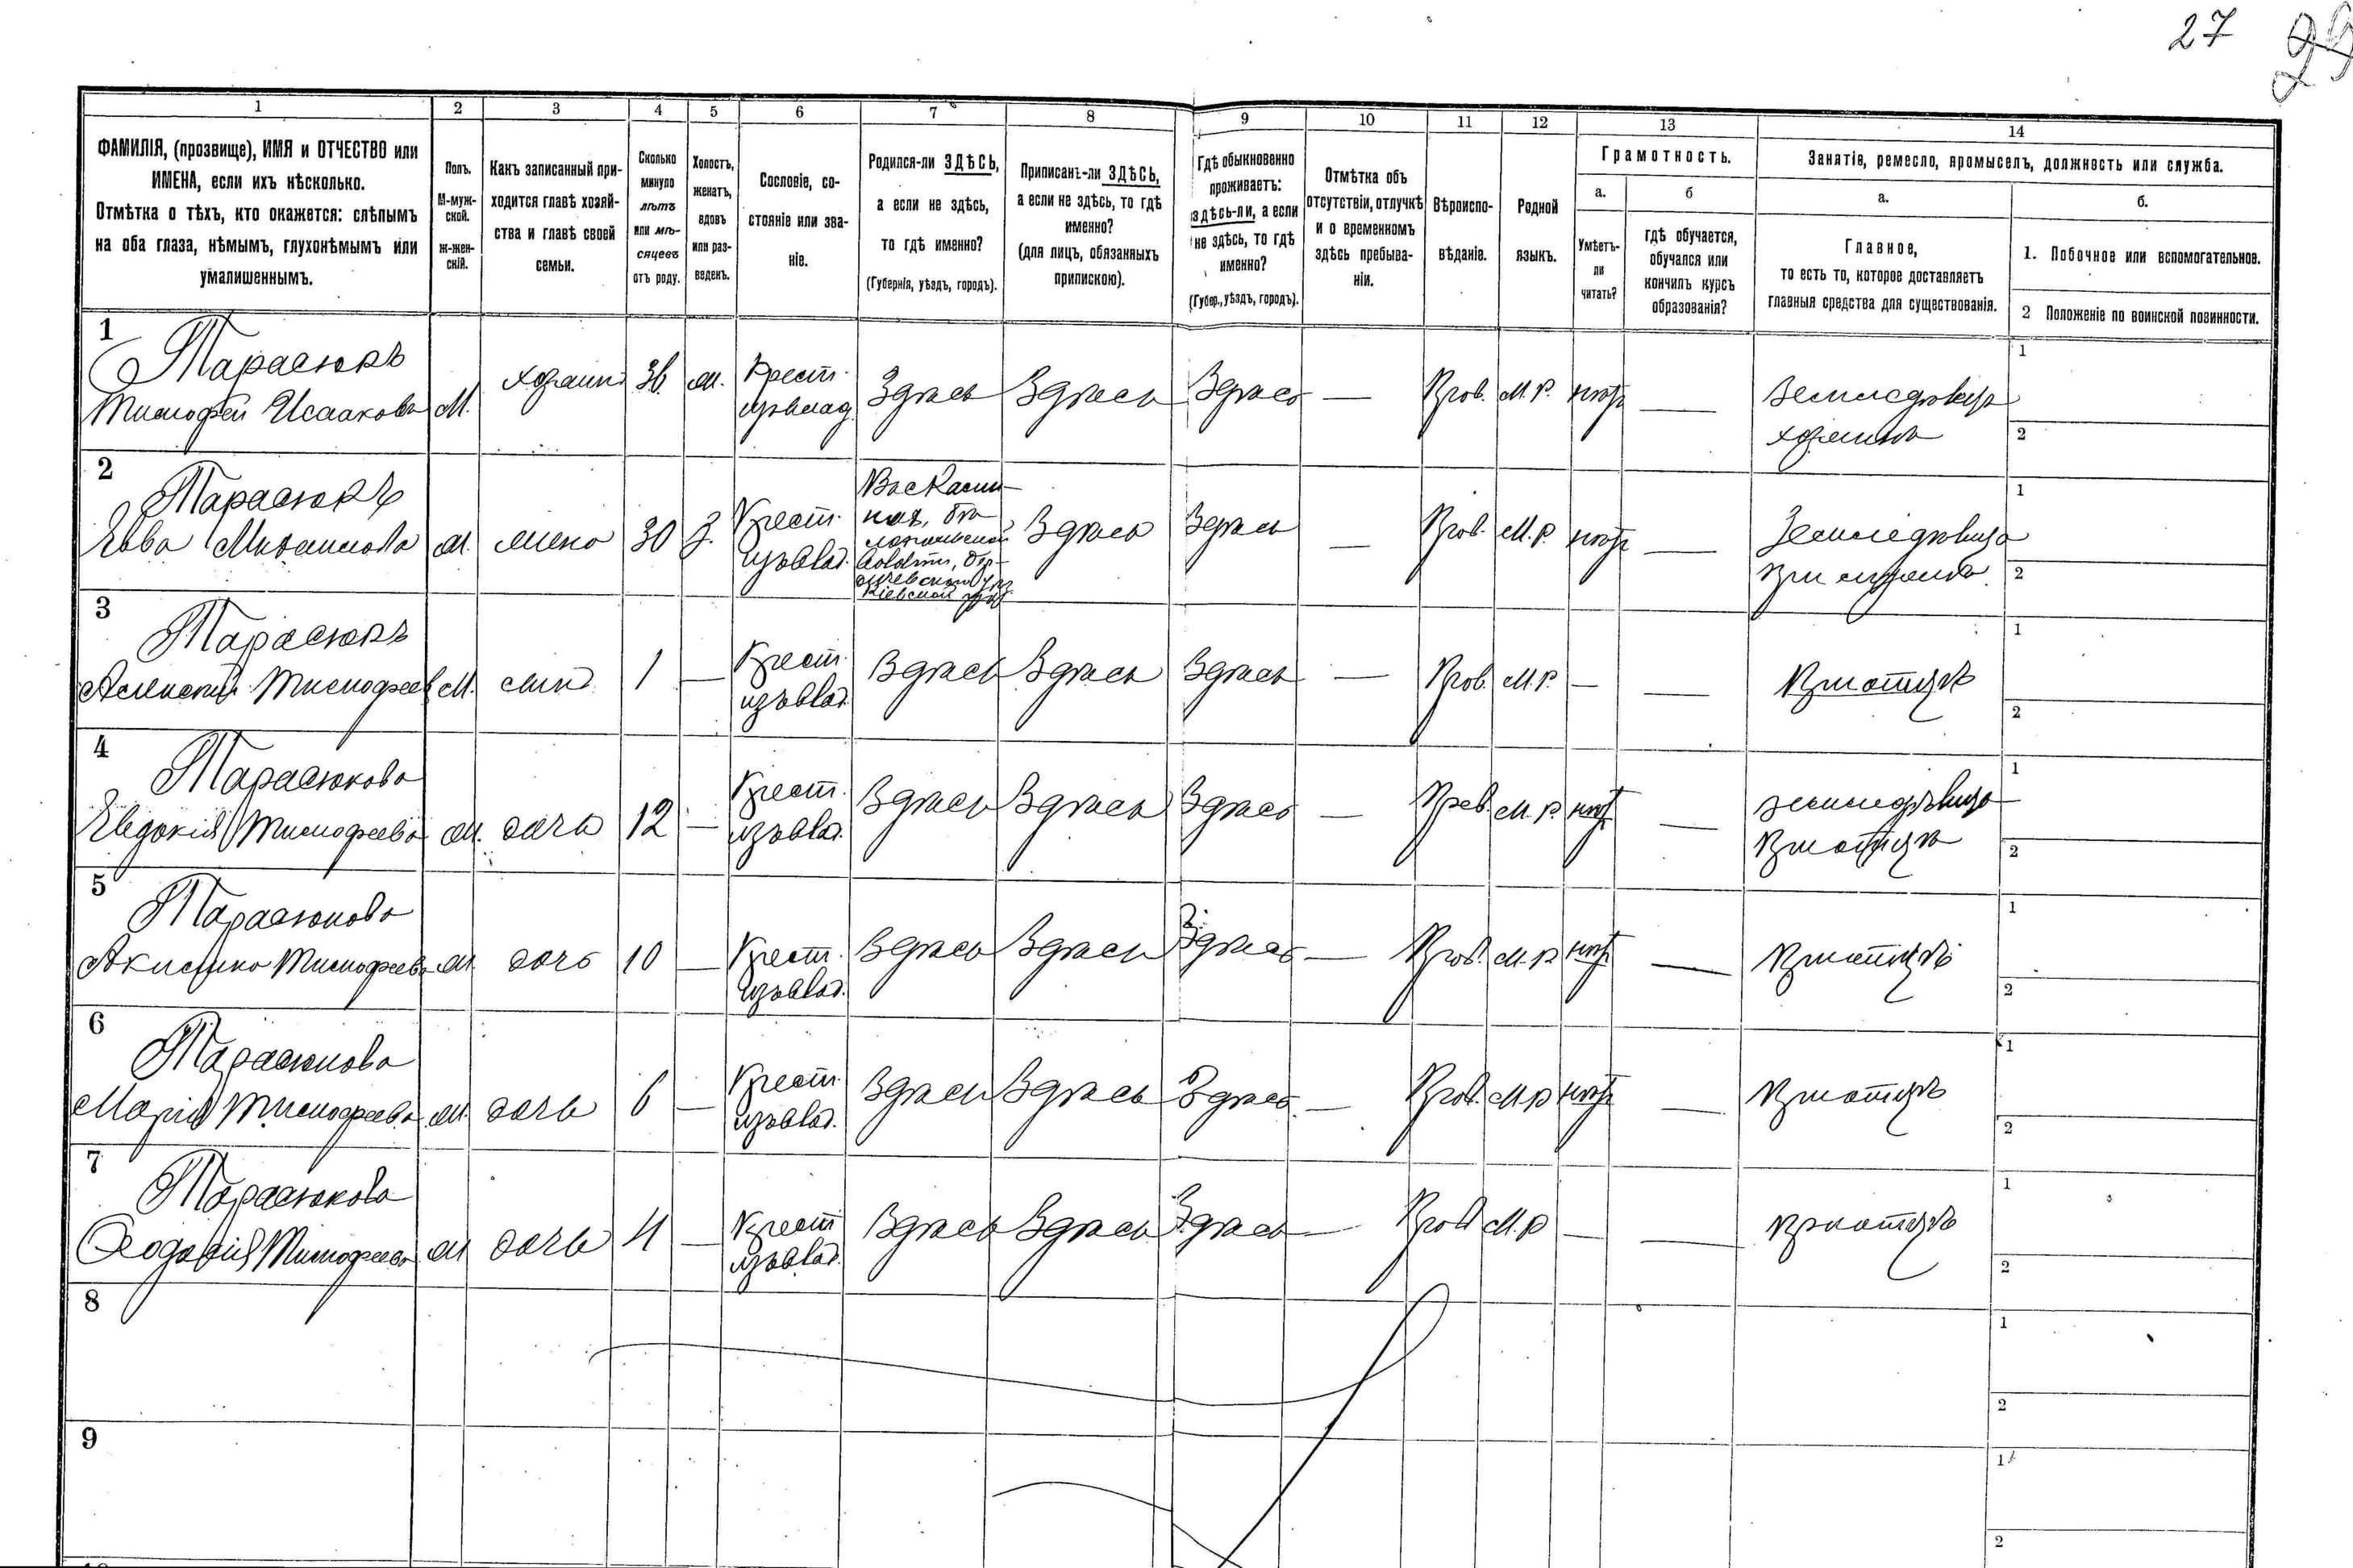 27
1 2 3 4 5 6 7 8 9 10 11 12 13 14
ФАМИЛІЯ, (прозвище), ИМЯ и ОТЧЕСТВО или
ИМЕНА, если ихъ нѣсколько.
Отмѣтка о тѣхъ, кто окажется: слѣпымъ
на оба глаза, нѣмымъ, глухонѣмымъ или
умалишеннымъ.
Полъ.
М-муж-
ской.
ж-жен-
скій.
Какъ записанный при-
ходится главѣ хозяй-
ства и главѣ своей
семьи.
Сколько
минуло
лѣтъ
или мѣ-
сяцевъ
отъ роду.
Холостъ,
женатъ,
вдовъ
или раз-
веденъ.
Сословіе, со-
стояніе или зва-
ніе.
Родился-ли ЗДѢСЬ,
а если не здѣсь,
то гдѣ именно?
(Губернія, уѣздъ, городъ).
Приписанъ-ли ЗДѢСЬ,
а если не здѣсь, то гдѣ
именно?
(для лицъ, обязанныхъ
припискою).
Гдѣ обыкновенно
проживаетъ:
здѣсь-ли, а если
не здѣсь, то гдѣ
именно?
(Губер., уѣздъ, городъ).
Отмѣтка объ
отсутствіи, отлучкѣ
и о временномъ
здѣсь пребыва-
ніи.
Вѣроиспо-
вѣданіе.
Родной
языкъ.
Грамотность.
а.
Умѣетъ-
ли
читать?
б
гдѣ обучается,
обучался или
кончилъ курсъ
образованія?
Занятіе, ремесло, промыселъ, должность или служба.
а.
Главное,
то есть то, которое доставляетъ
главныя средства для существованія.
б.
1. Побочное или вспомогательное.
2 Положеніе по воинской повинности.
1
Тарасюкъ
Тимофей Исааковъ М. хозяинъ 36 ж. Крест. Здѣсь Здѣсь Здѣсь — Прав. М.Р. нѣтъ — Земледѣлецъ 1
изъвлад. хозяинъ 2
2
Тарасюкъ
Евва Михаилова ж. жена 30 З. Крест. Здѣсь Здѣсь — Прав. М.Р. нѣтъ — Земледѣлица 1
изъвлад. Кіевской губ. при мужѣ 2
3
Тарасюкъ
Тимофеев М. сынъ 1 — Крест. Здѣсь Здѣсь Здѣсь — Прав. М.Р. — — При отцѣ 1
изъвлад. 2
4
Тарасюкова
Евдокія Тимофеева ж. дочь 12 — Крест. Здѣсь Здѣсь Здѣсь — Прав. М.Р. нѣтъ — земледѣлица 1
изъвлад. При отцѣ 2
5
Тарасюкова
Тимофеева ж. дочь 10 — Крест. Здѣсь Здѣсь Здѣсь — Прав. М.Р. нѣтъ — При отцѣ 1
изъвлад. 2
6
Тарасюкова
Марія Тимофеева ж. дочь 6 — Крест. Здѣсь Здѣсь Здѣсь — Прав. М.Р. нѣтъ — При отцѣ 1
изъвлад. 2
7
Тарасюкова
Тимофеева ж дочь 4 — Крест Здѣсь Здѣсь Здѣсь — Прав М.Р — — При отцѣ 1
изъвлад. 2
8 1
2
9 1
2